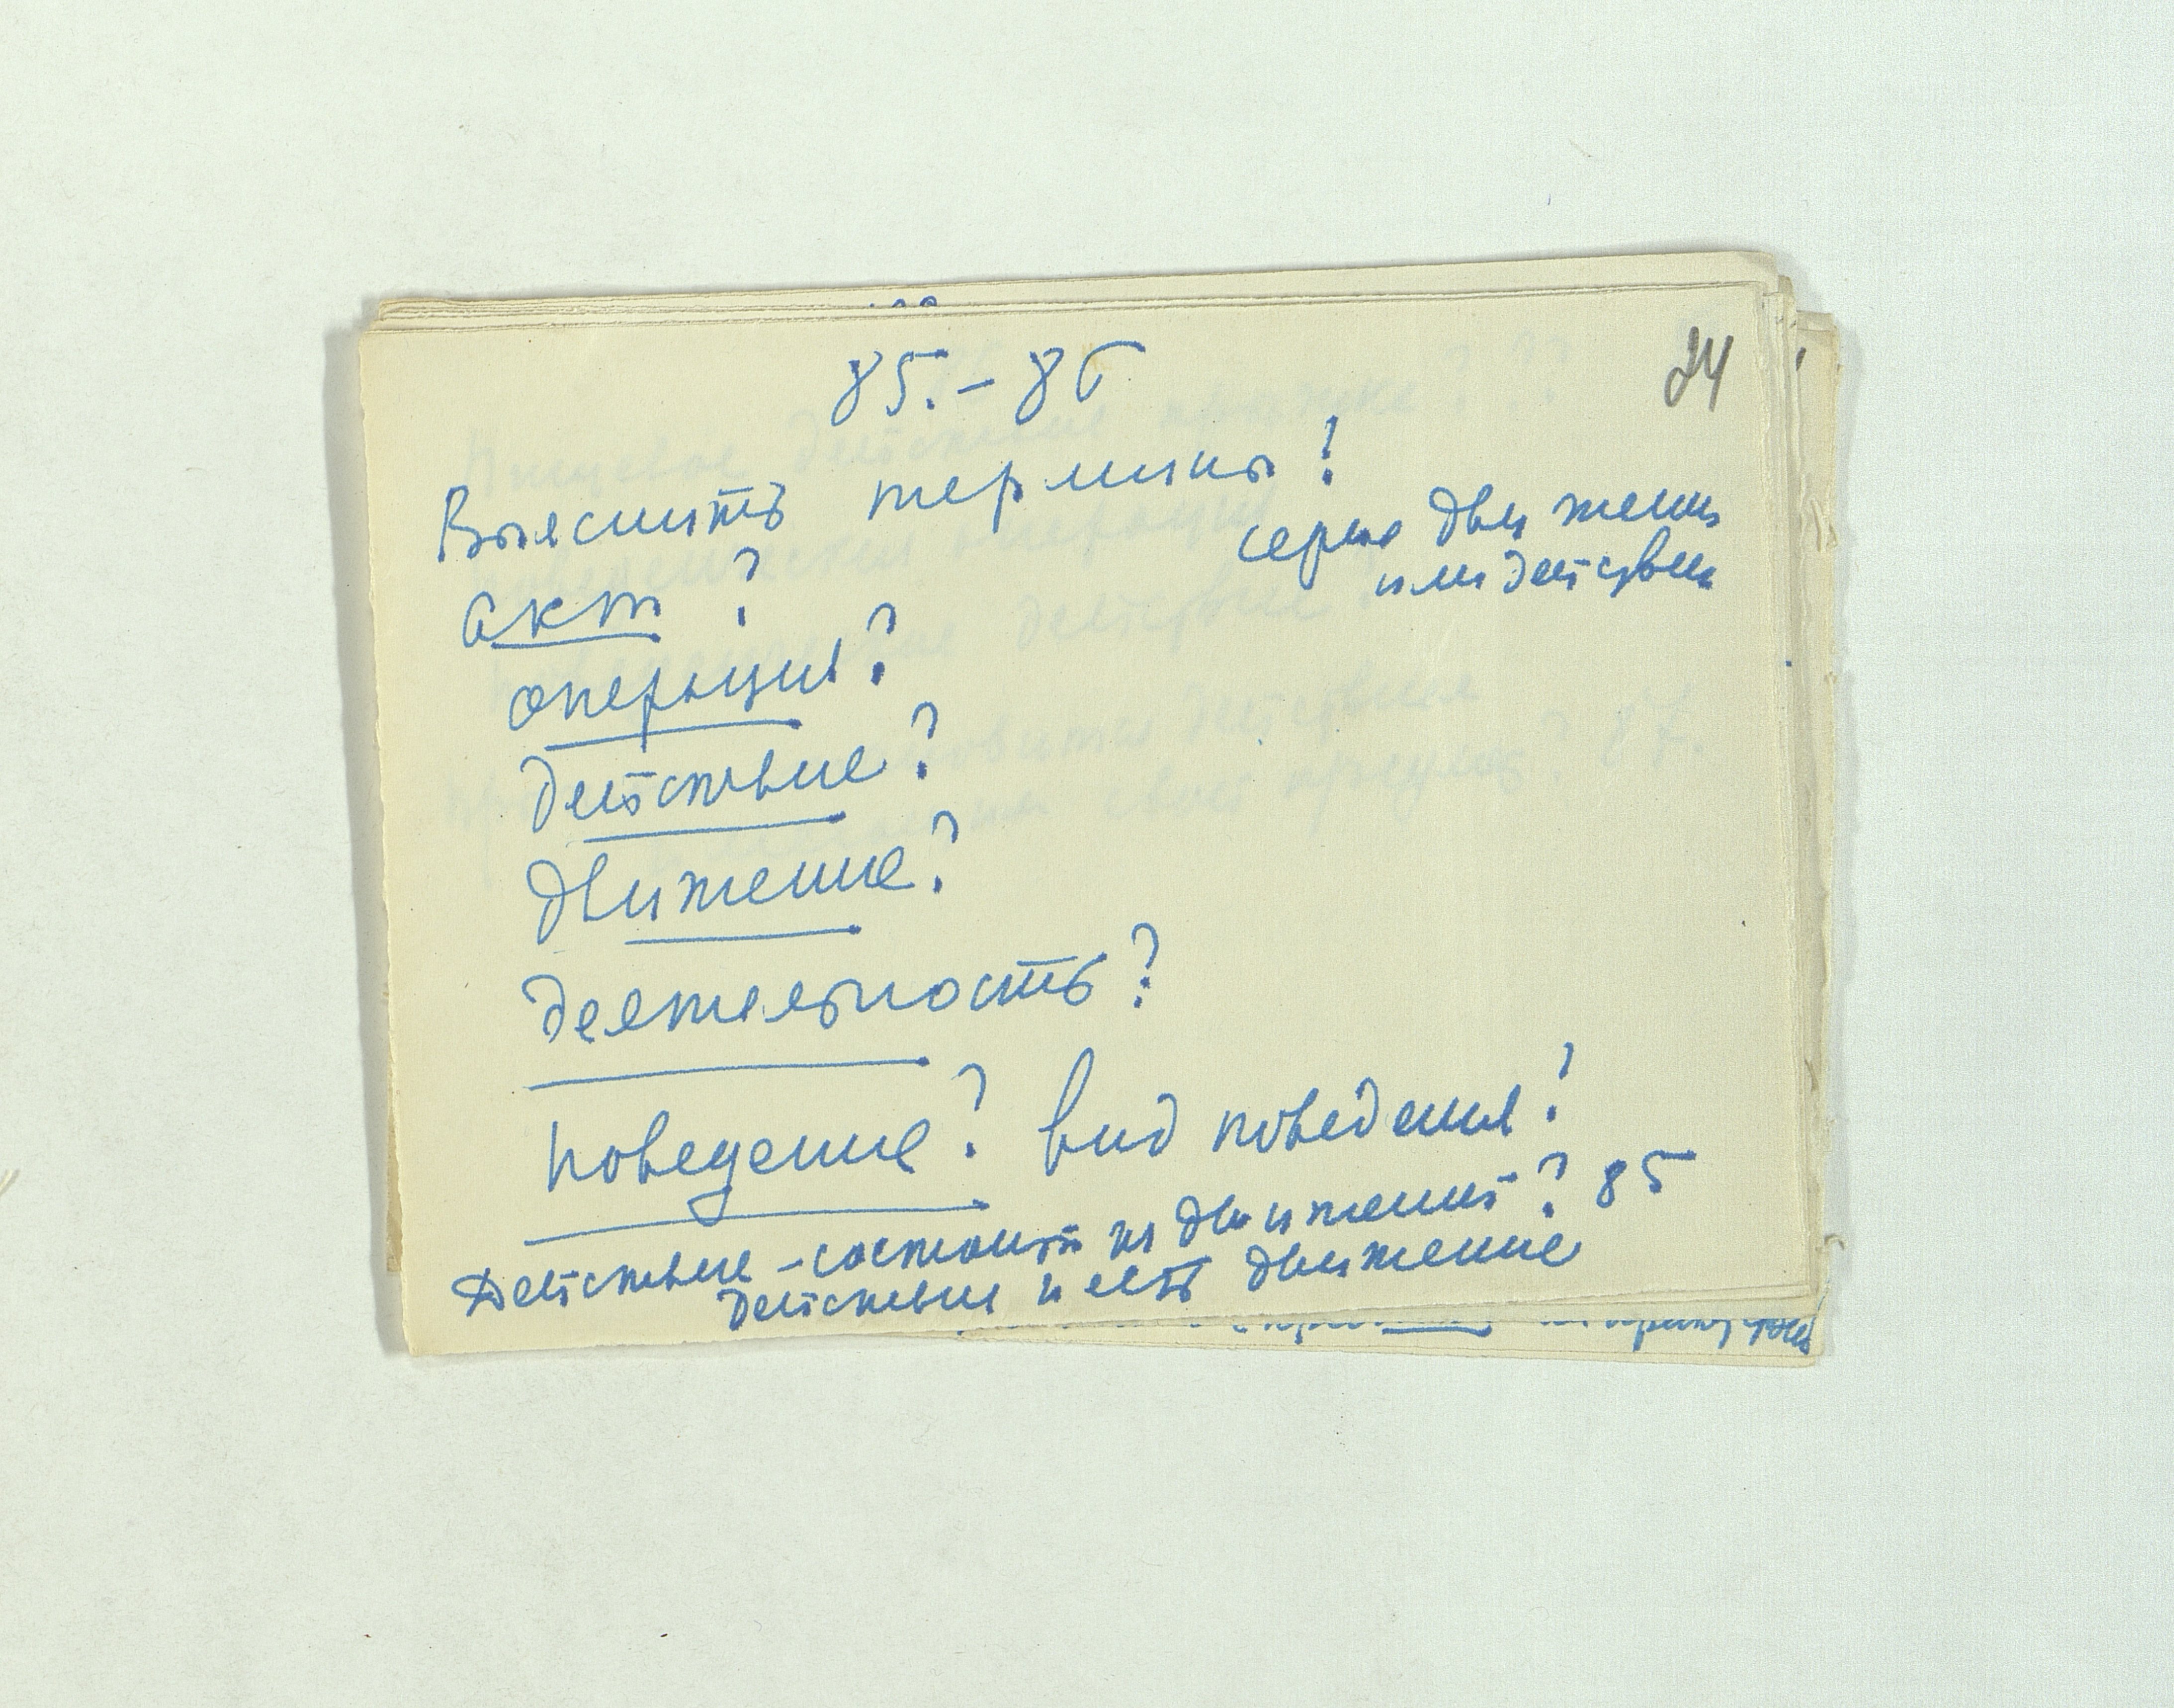 85.-86
24
Выяснить термины!
серия движений
или действий
Акт?
операция?
действие?
движение?
деятельность?
поведение? вид поведения?
Действие - состоит из движений? 85
действие и есть движение